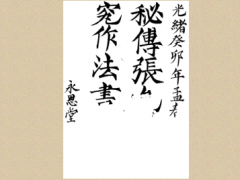 光緒癸卯年孟春
秘傳張
究作法書
永恩堂